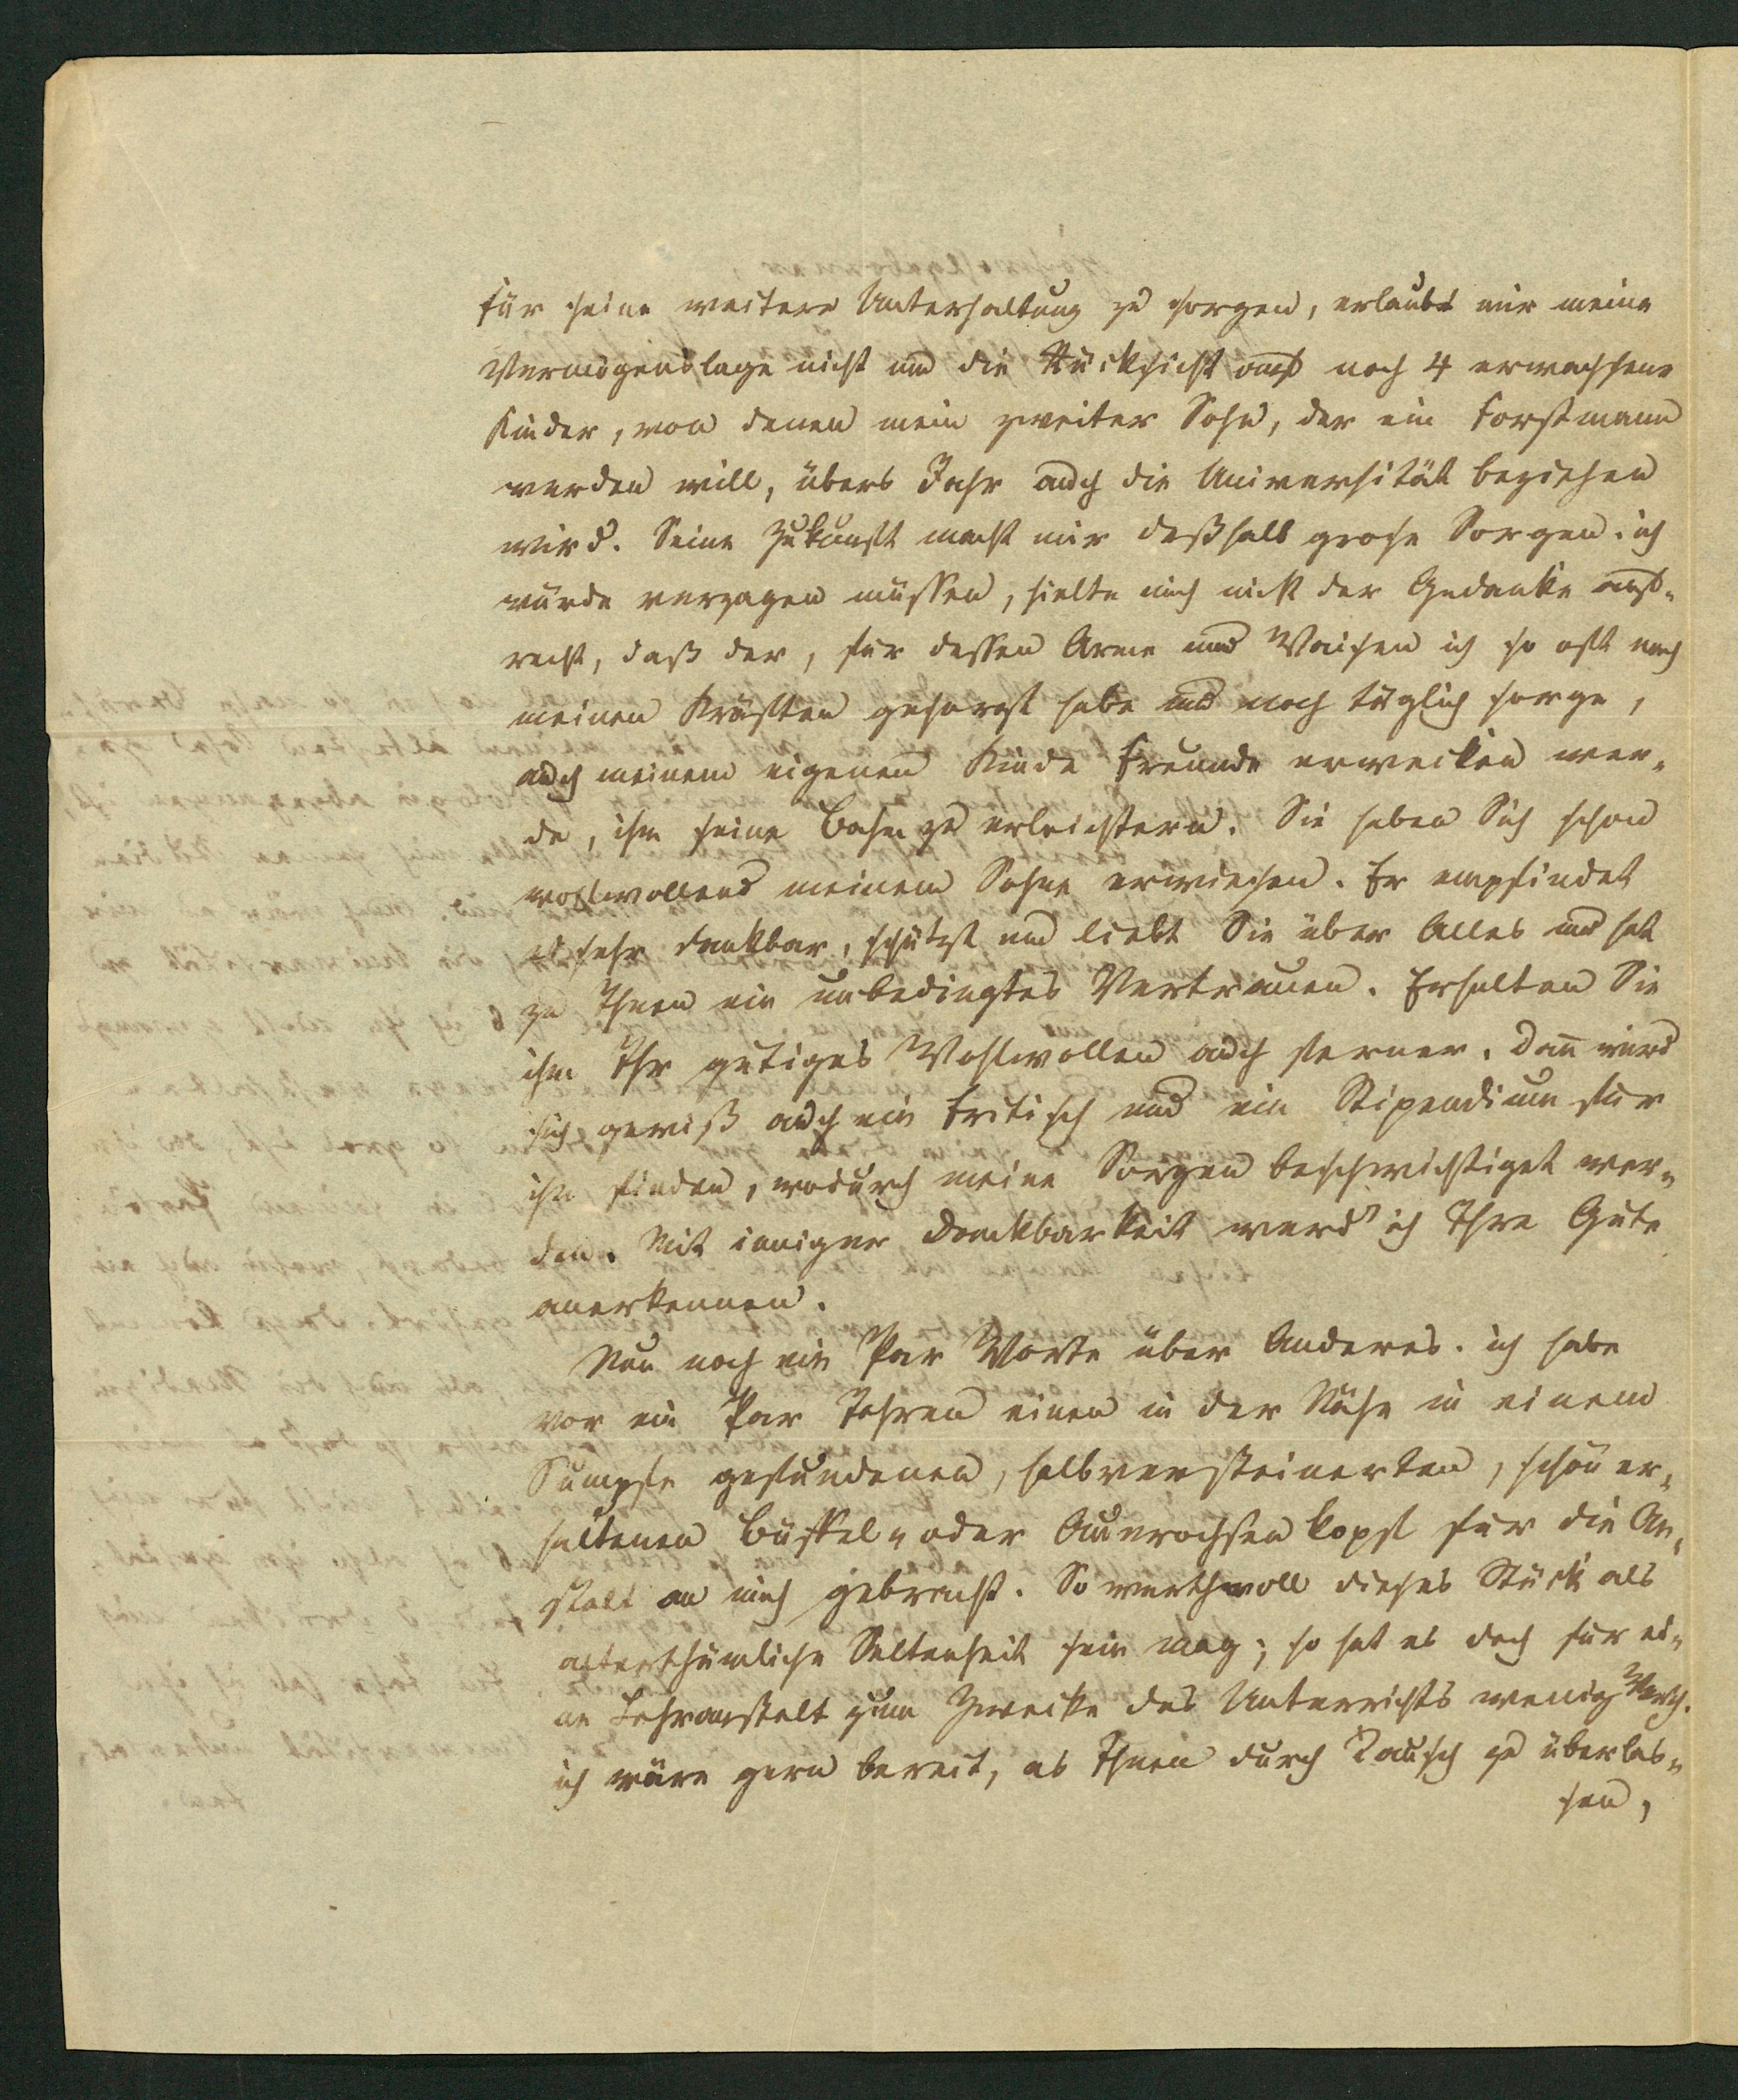 für seine weitere Unterhaltung zu sorgen, erlaubt mir meine
Vermögenslage nicht und die Rücksicht auf noch 4 erwachsene
Kinder, von denen mein zweiter Sohn, der ein Forstmann
werden will, übers Jahr auch die Universität beziehen
wird. Seine Zukunft macht mir deßhalb grose Sorgen: ich
würde verzagen müssen, hielte mich nicht der Gedanke auf-
recht, daß der, für dessen Arme und Waisen ich so oft nach
meinen Kräften gesorgt habe und noch täglich sorge,
auch meinem eigenen Kinde Freunde erwecken wer-
de, ihm seine Bahn zu erleichtern. Sie haben Sich schon
wohlwollend meinem Sohne erwiesen. Er empfindet
es sehr dankbar, schätzt und liebt Sie über Alles und hat
zu Ihnen ein unbedingtes Vertrauen. Erhalten Sie
ihm Ihr gütiges Wohlwollen auch ferner. Dann wird
sich gewiß auch ein Freitisch und ein Stipendium für
ihn finden, wodurch meine Sorgen beschwichtiget wer-
den. Mit inniger Dankbarkeit werd' ich Ihre Güte
anerkennen.
Nun noch ein Par Worte über Anderes. ich habe
vor ein Par Jahren einen in der Nähe in einem
Sumpfe gefundenen, halbversteinerten, schön er-
haltenen Büffel- oder Auerochsenkopf für die An-
stalt an mich gebracht. So werthvoll dieses Stück als
alterthümliche Seltenheit sein mag; so hat es doch für ei-
ne Lehranstalt zum Zwecke des Unterrichts wenig Werth.
ich wäre gern bereit, es Ihnen durch Tausch zu überlas-
sen,